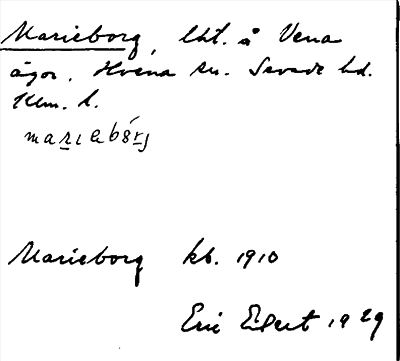 Marieborg, lht. å Vena
ägor. Hvena sn. Sevede hd.
Klm. l.
maṟıebórj
Marieborg kb. 1910
Eric Elgert 1929